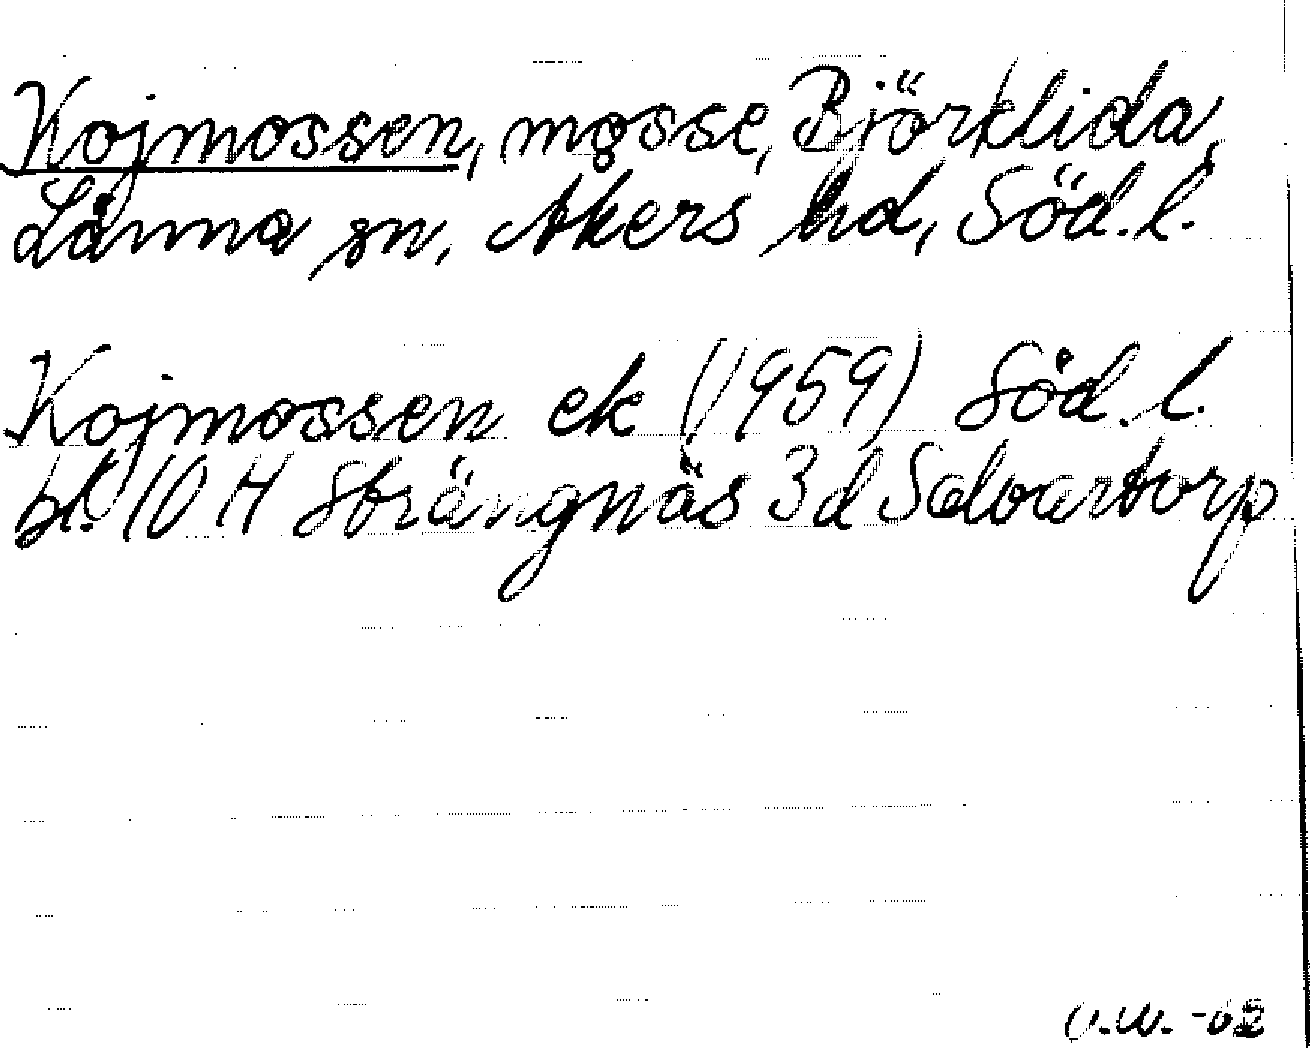 Kojmossen, mosse, Björklida,
Länna sn, Åkers hd, Söd.l.
Kojmossen ek (1959) Söd.l.
bl. 10 H Strängnäs 3d Solvartorp
-62